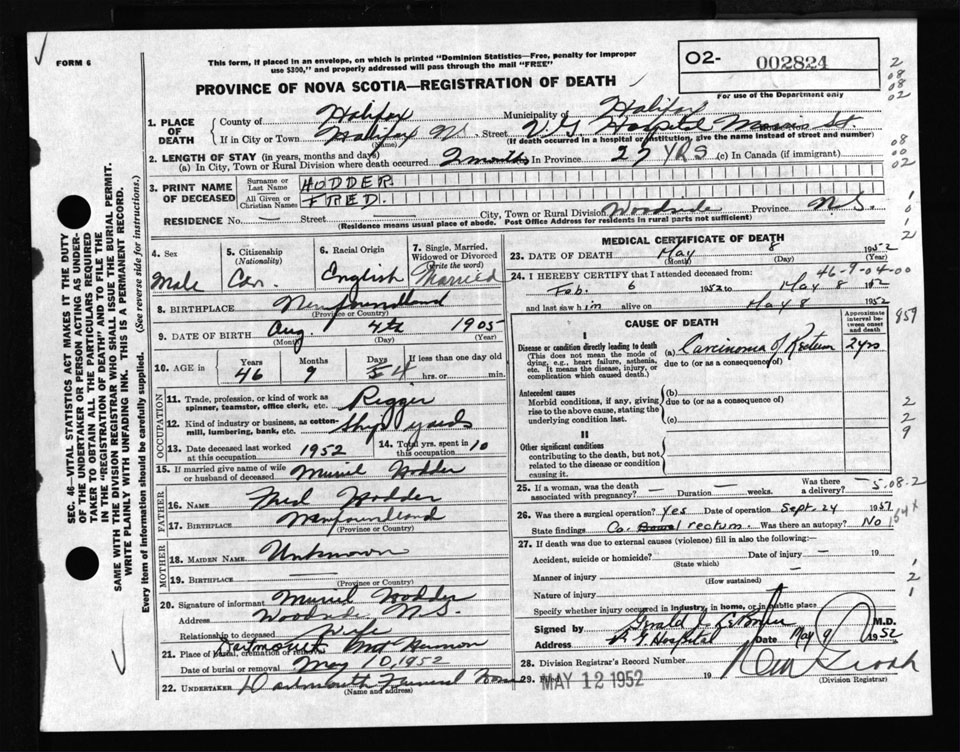 FORM 6
This form, if placed in an envelope, on which is printed "Dominion Statistics—Free, penalty for improper
use $300," and properly addressed will pass through the mail "FREE"
PROVINCE OF NOVA SCOTIA—REGISTRATION OF DEATH
O2- 002824
For use of the Department only
SEC. 46—VITAL STATISTICS ACT MAKES IT THE DUTY
OF THE UNDERTAKER OR PERSON ACTING AS UNDER-
TAKER TO OBTAIN ALL THE PARTICULARS REQUIRED
IN THE "REGISTRATION OF DEATH" AND TO FILE THE
SAME WITH THE DIVISION REGISTRAR WHO SHALL ISSUE THE BURIAL PERMIT.
WRITE PLAINLY WITH UNFADING INK. THIS IS A PERMANENT RECORD.
Every item of information should be carefully supplied. (See reverse side for instructions.)
1. PLACE OF DEATH
County of Halifax Municipality of Halifax
If in City or Town Halifax N.S. Street V.G. Hospital Morris St.
(Name) (If death occurred in a hospital or institution, give the name instead of street and number)
2. LENGTH OF STAY (in years, months and days)
(a) In City, Town or Rural Division where death occurred 2 months In Province 27 YRS (c) In Canada (if immigrant)
3. PRINT NAME OF DECEASED
Surname or Last Name HODDER
All Given or Christian Names FRED.
RESIDENCE No. — Street — City, Town or Rural Division Woodside Province N.S.
(Residence means usual place of abode. Post Office Address for residents in rural parts not sufficient)
4. Sex Male
5. Citizenship (Nationality) Can.
6. Racial Origin English
7. Single, Married, Widowed or Divorced (Write the word) Married
8. BIRTHPLACE Newfoundland
(Province or Country)
9. DATE OF BIRTH Aug. 4th 1905
(Month) (Day) (Year)
10. AGE in Years 46 Months 9 Days 4 If less than one day old hrs. or min.
OCCUPATION
11. Trade, profession, or kind of work as spinner, teamster, office clerk, etc. Rigger
12. Kind of industry or business, as cotton-mill, lumbering, bank, etc. Ship yards
13. Date deceased last worked at this occupation 1952 14. Total yrs. spent in this occupation 10
15. If married give name of wife or husband of deceased Muriel Hodder
FATHER
16. NAME Fred Hodder
17. BIRTHPLACE Newfoundland
(Province or Country)
MOTHER
18. MAIDEN NAME Unknown
19. BIRTHPLACE —
(Province or Country)
20. Signature of informant Muriel Hodder
Address Woodside N.S.
Relationship to deceased Wife
21. Place of burial, cremation or removal Dartmouth Mt Hermon
Date of burial or removal May 10, 1952
22. UNDERTAKER Dartmouth Funeral Home
(Name and address)
MEDICAL CERTIFICATE OF DEATH
23. DATE OF DEATH May 8 1952
(Month) (Day) (Year)
46-9-04-00
24. I HEREBY CERTIFY that I attended deceased from
Feb. 6 1952 to May 8 1952
and last saw him alive on May 8 1952
CAUSE OF DEATH
Approximate interval between onset and death
I
Disease or condition directly leading to death
(This does not mean the mode of dying, e.g., heart failure, asthenia, etc. It means the disease, injury, or complication which caused death.)
(a) Carcinoma of Rectum 2 yrs
due to (or as a consequence of)
Antecedent causes
Morbid conditions, if any, giving rise to the above cause, stating the underlying condition last.
(b)
due to (or as a consequence of)
(c)
II
Other significant conditions
contributing to the death, but not related to the disease or condition causing it.
25. If a woman, was the death associated with pregnancy? — Duration — weeks. Was there a delivery? —
26. Was there a surgical operation? Yes Date of operation Sept. 24 1951
State findings Ca. rectum. Was there an autopsy? No
27. If death was due to external causes (violence) fill in also the following:—
Accident, suicide or homicide? Date of injury — 19
(State which)
Manner of injury —
(How sustained)
Nature of injury
Specify whether injury occurred in industry, in home, or in public place
Signed by Gerald J. M.D.
Address V.G. Hospital Date May 9 1952
28. Division Registrar's Record Number
29. Filed MAY 12 1952 19
(Division Registrar)
2
08
08
02
08
00
02
1
0
1
2
859
2
2
9
5.08.2
1
2
1